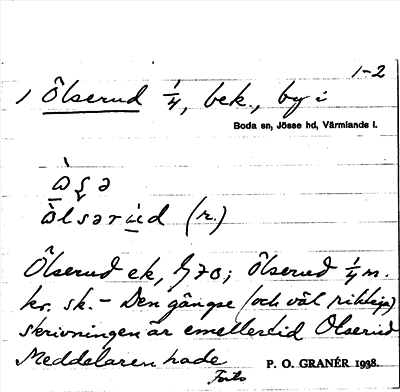 1-2
1 Ölserud 1/4, bek., by i
Boda sn, Jösse hd, Värmlands l.
òlsərùd (r.)
Ölserud ek, Ölserud 1/4 m.
kr. sk. - Den gängse (och väl riktiga)
skrivningen är emellertid Olserud
Meddelaren hade P. O. GRANÉR 1938.
Forts